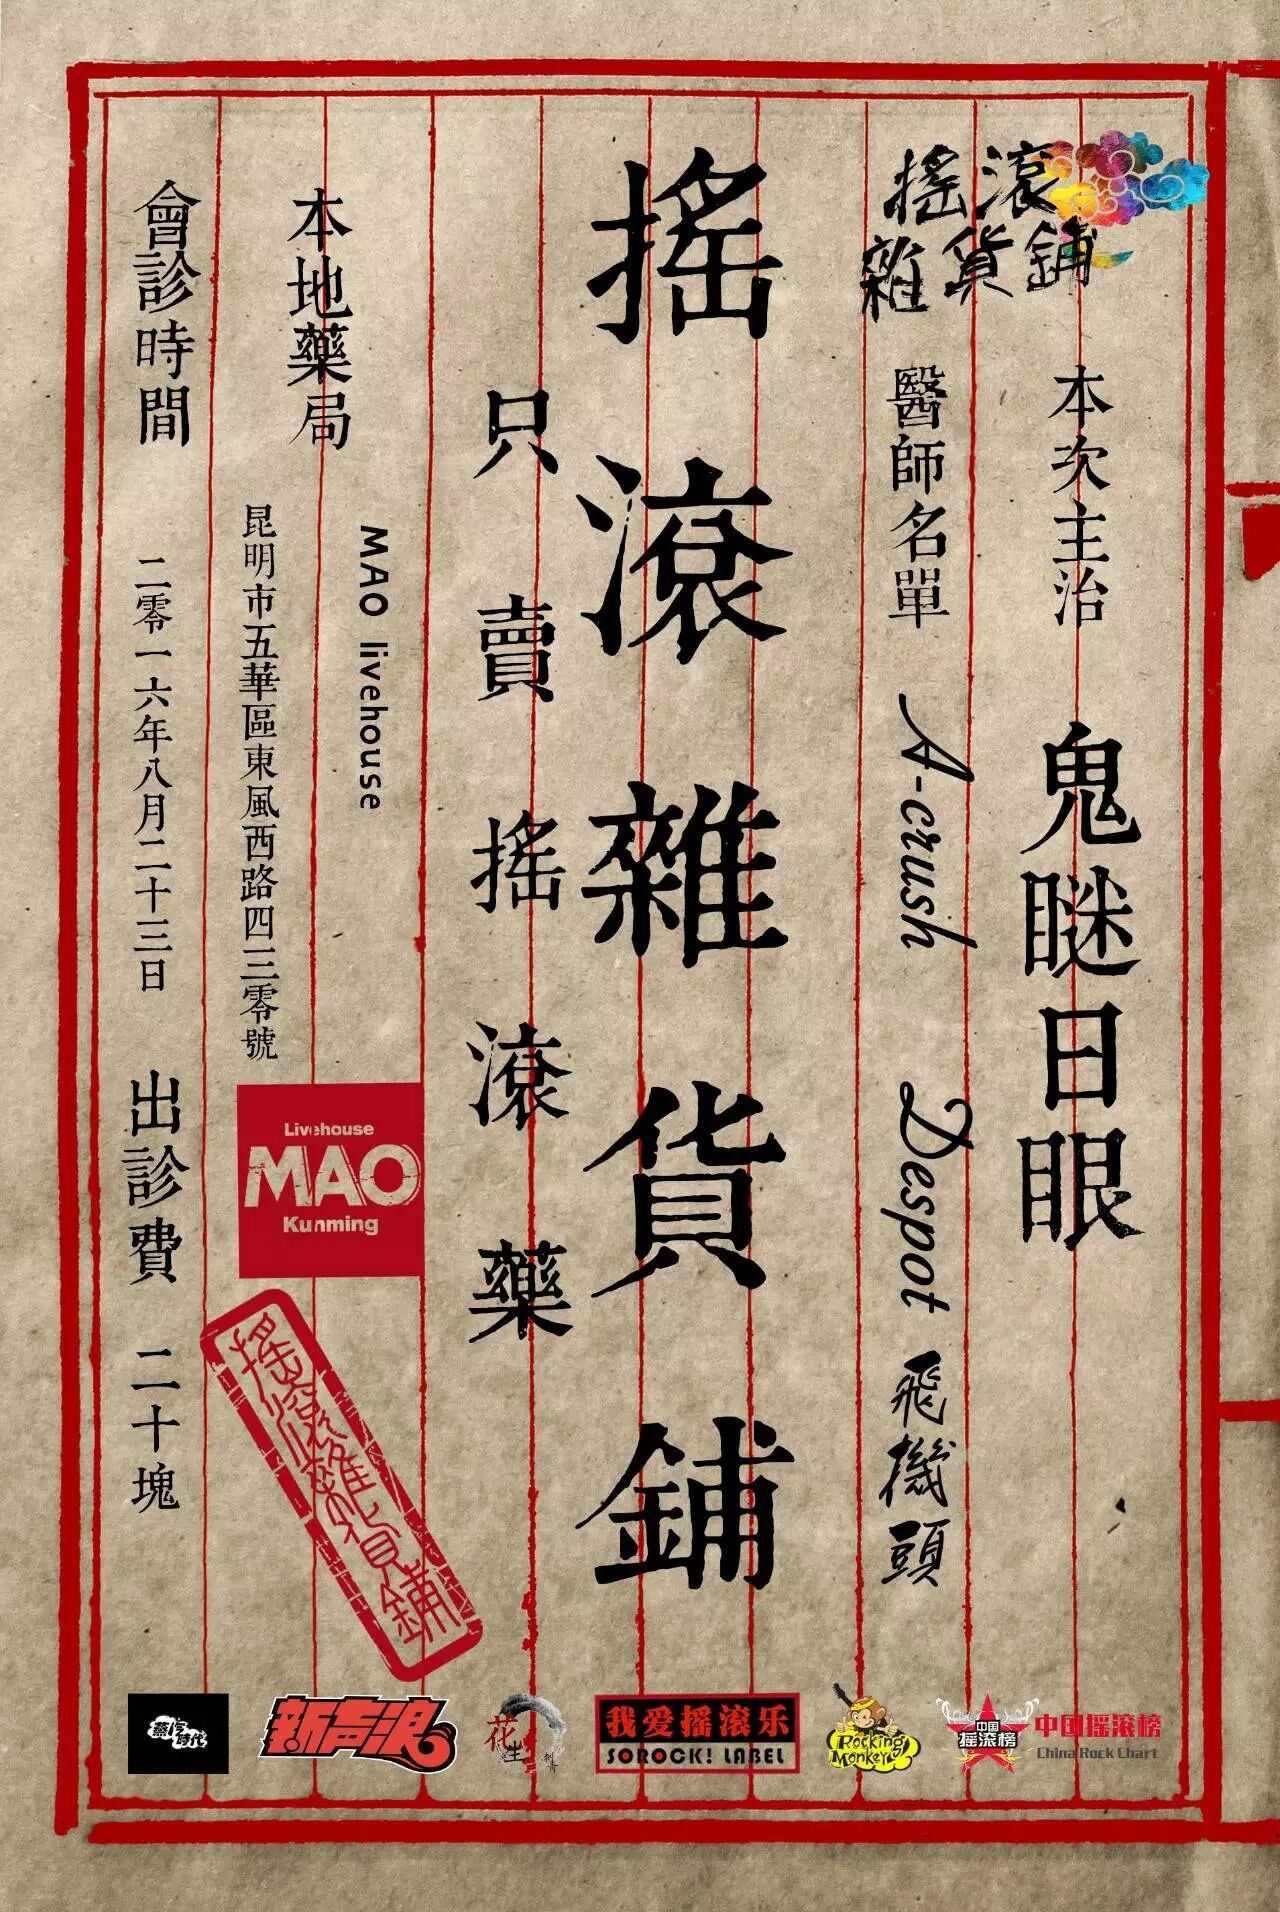 搖滾
雜貨鋪
本次主治
鬼瞇日眼
醫師名單
A-crush
Despot
飛機頭
搖滾雜貨鋪
只賣搖滾藥
本地藥局
MAO livehouse
昆明市五華區東風西路四三零號
Livehouse
MAO
Kunming
搖滾雜貨鋪
會診時間
二零一六年八月二十三日
出診費
二十塊
蒸汽時代
新声浪
花生
刺青
我爱摇滚乐
SOROCK! LABEL
Rocking
Monkey
中国
摇滚榜
中国摇滚榜
China Rock Chart